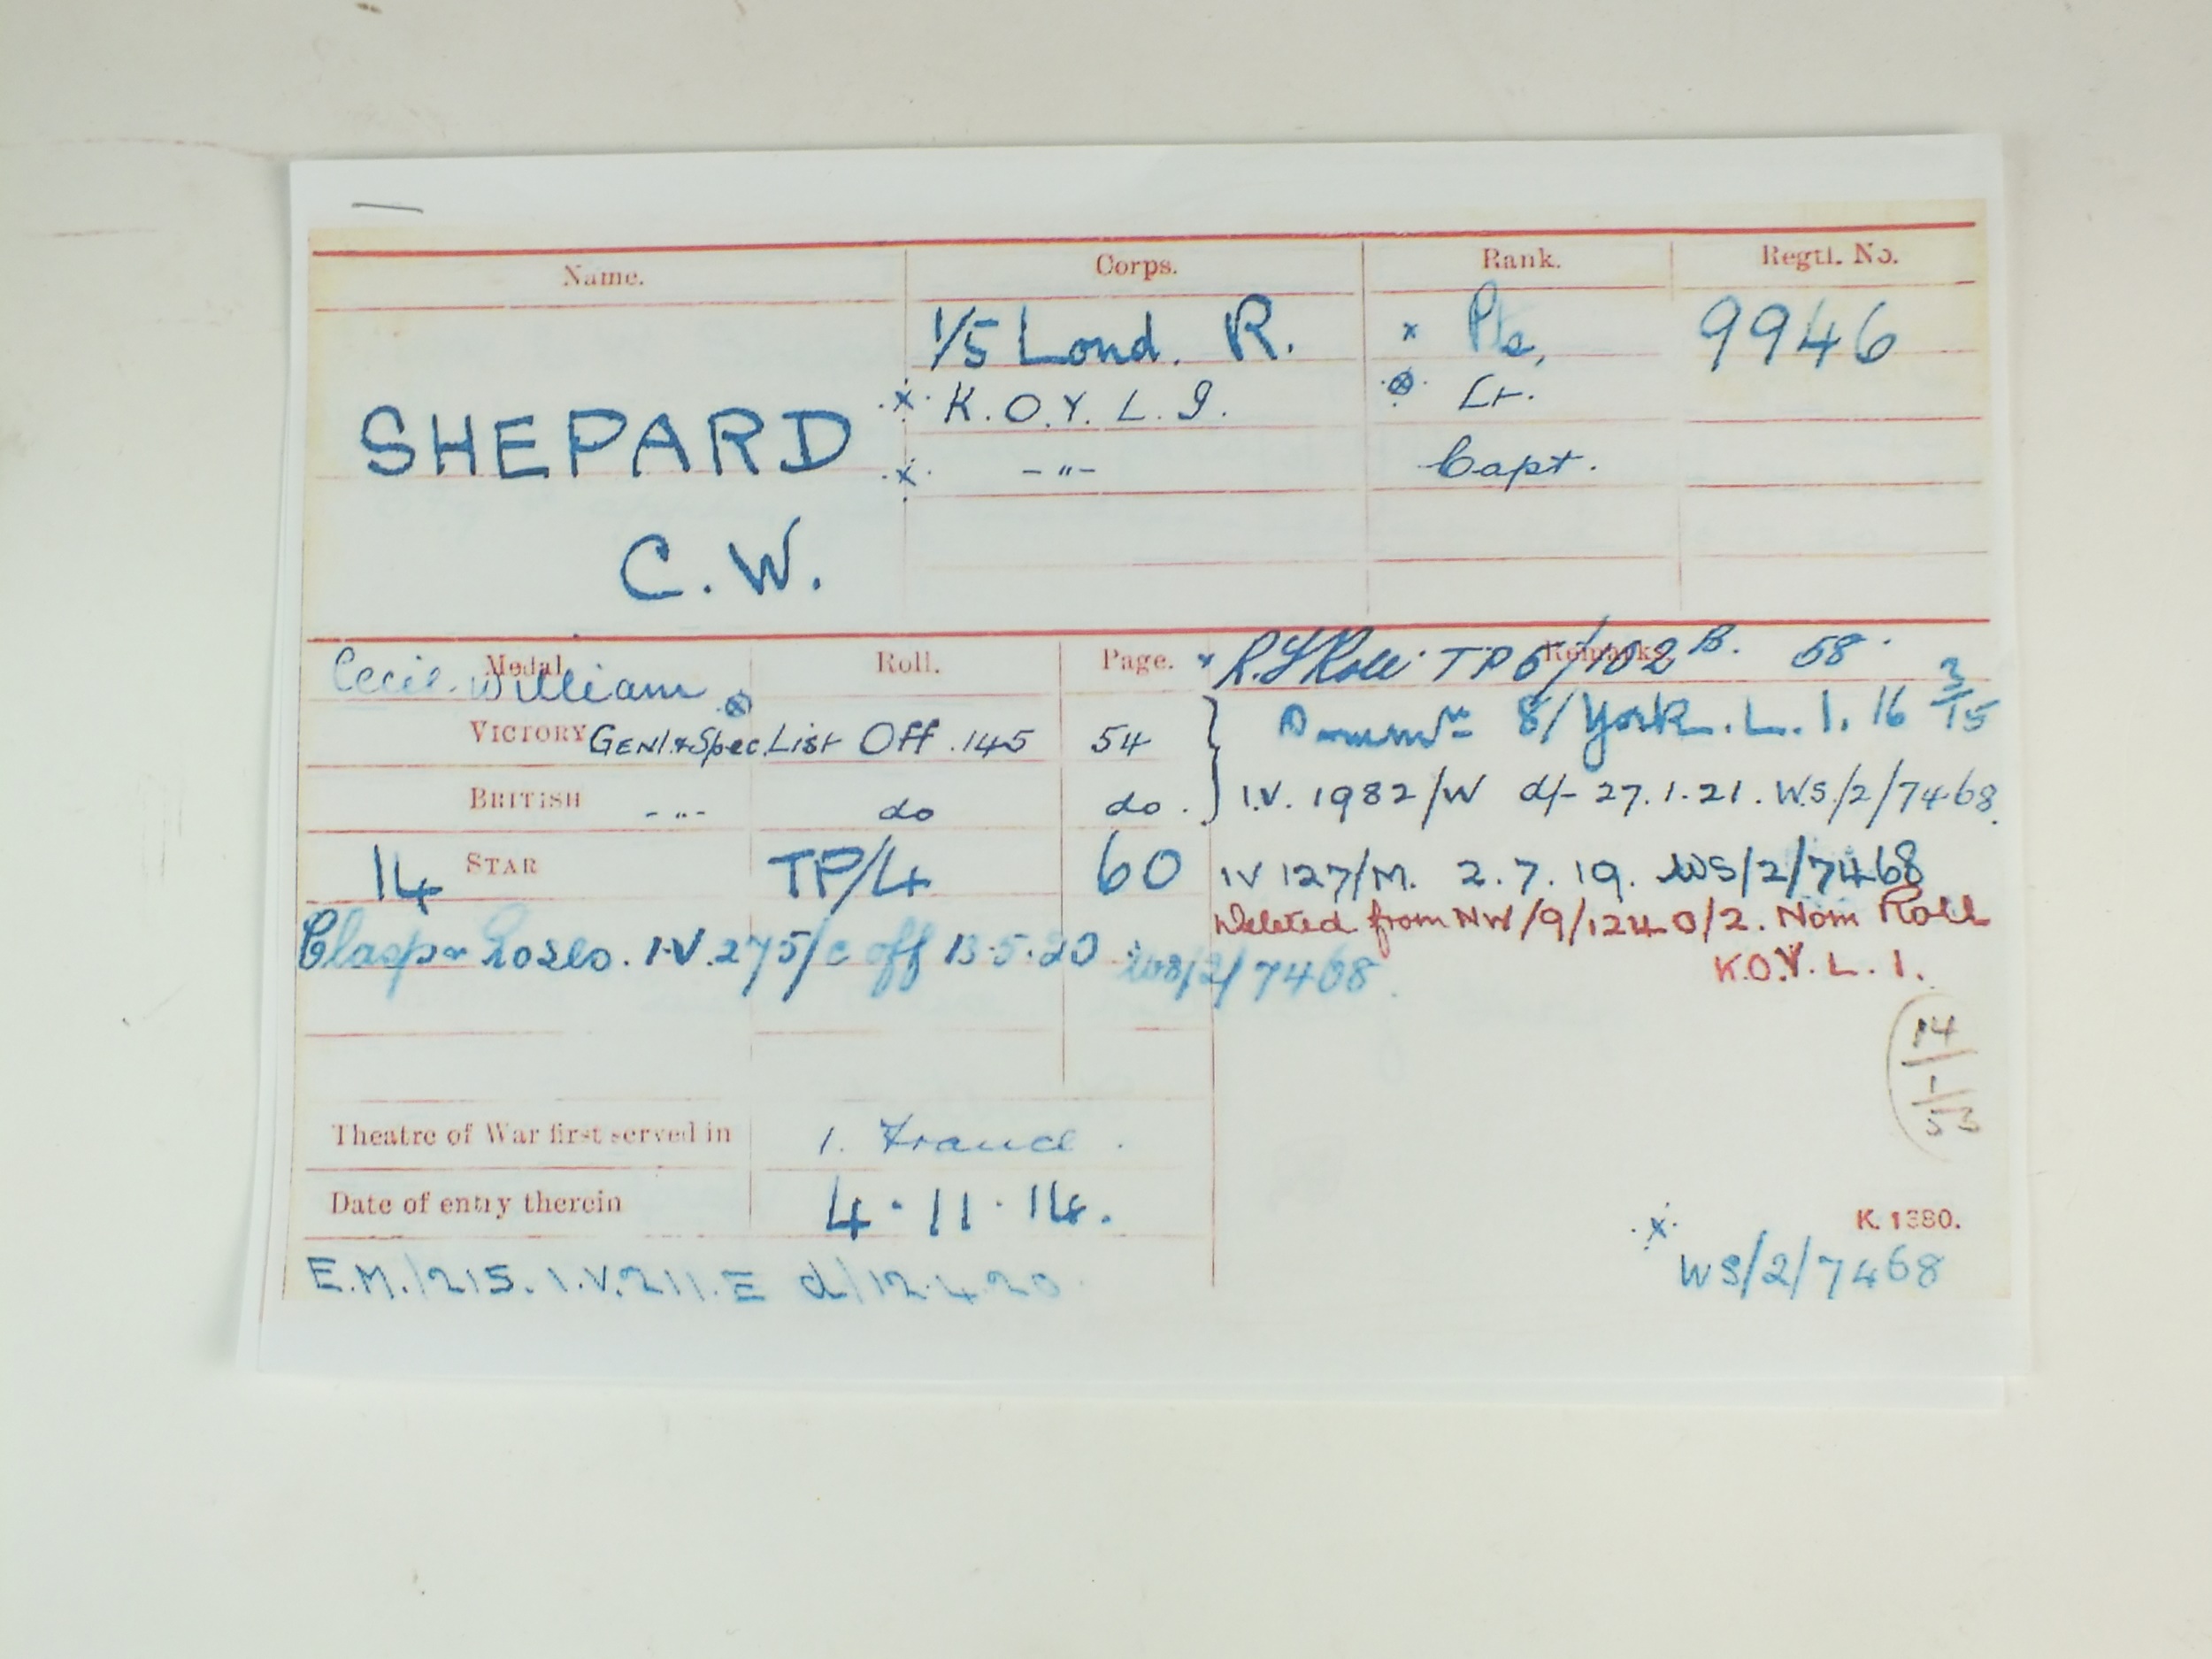 Name. Corps. Rank. Regtl. No.
1/5 Lond. R. x Pte, 9946
SHEPARD x K.O.Y.L.I. ⊗ Lt.
x -"- Capt.
C.W.
Medal. Roll. Page. Remarks.
Cecil William ⊗ x R. Roll TP 5/102 B. 58.
VICTORY Genl & Spec List Off. 145 54 8/York. L. I. 16 3/15
BRITISH -"- do do. I.V. 1982/W d/- 27.1.21. WS/2/7468.
14 STAR TP/4 60 IV 127/M. 2.7.19. WS/2/7468
Deleted from NW/9/1240/2. Nom Roll
K.O.Y.L.I.
Clasp & Roses. I.V. 275/c off 13.5.20 WS/2/7468.
14/1/53
Theatre of War first served in 1. France.
Date of entry therein 4.11.14.
K. 1380.
E.M./215. I.V.211.E d/12.4.20 x WS/2/7468